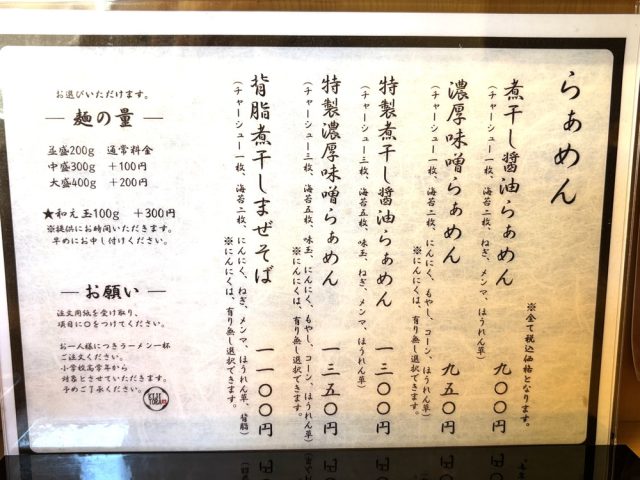 らぁめん
※全て税込価格となります。
煮干し醤油らぁめん 九〇〇円
(チャーシュー一枚、海苔二枚、ねぎ、メンマ、ほうれん草)
濃厚味噌らぁめん 九五〇円
(チャーシュー一枚、海苔二枚、にんにく、もやし、コーン、ほうれん草)
※にんにくは、有り無し選択できます。
特製煮干し醤油らぁめん 一三〇〇円
(チャーシュー三枚、海苔五枚、味玉、ねぎ、メンマ、ほうれん草)
特製濃厚味噌らぁめん 一三五〇円
(チャーシュー三枚、海苔五枚、味玉、にんにく、もやし、コーン、ほうれん草)
※にんにくは、有り無し選択できます。
背脂煮干しまぜそば 一一〇〇円
(チャーシュー一枚、海苔二枚、にんにく、ねぎ、メンマ、ほうれん草、背脂)
※にんにくは、有り無し選択できます。
お選びいただけます。
― 麺の量 ―
並盛200g 通常料金
中盛300g +100円
大盛400g +200円
★和え玉100g +300円
※提供にお時間いただきます。
早めにお申し付けください。
― お願い ―
注文用紙を受け取り、
項目に〇をつけてください。
お一人様につきラーメン一杯
ご注文ください。
小学校高学年から
対象とさせていただきます。
予めご了承ください。